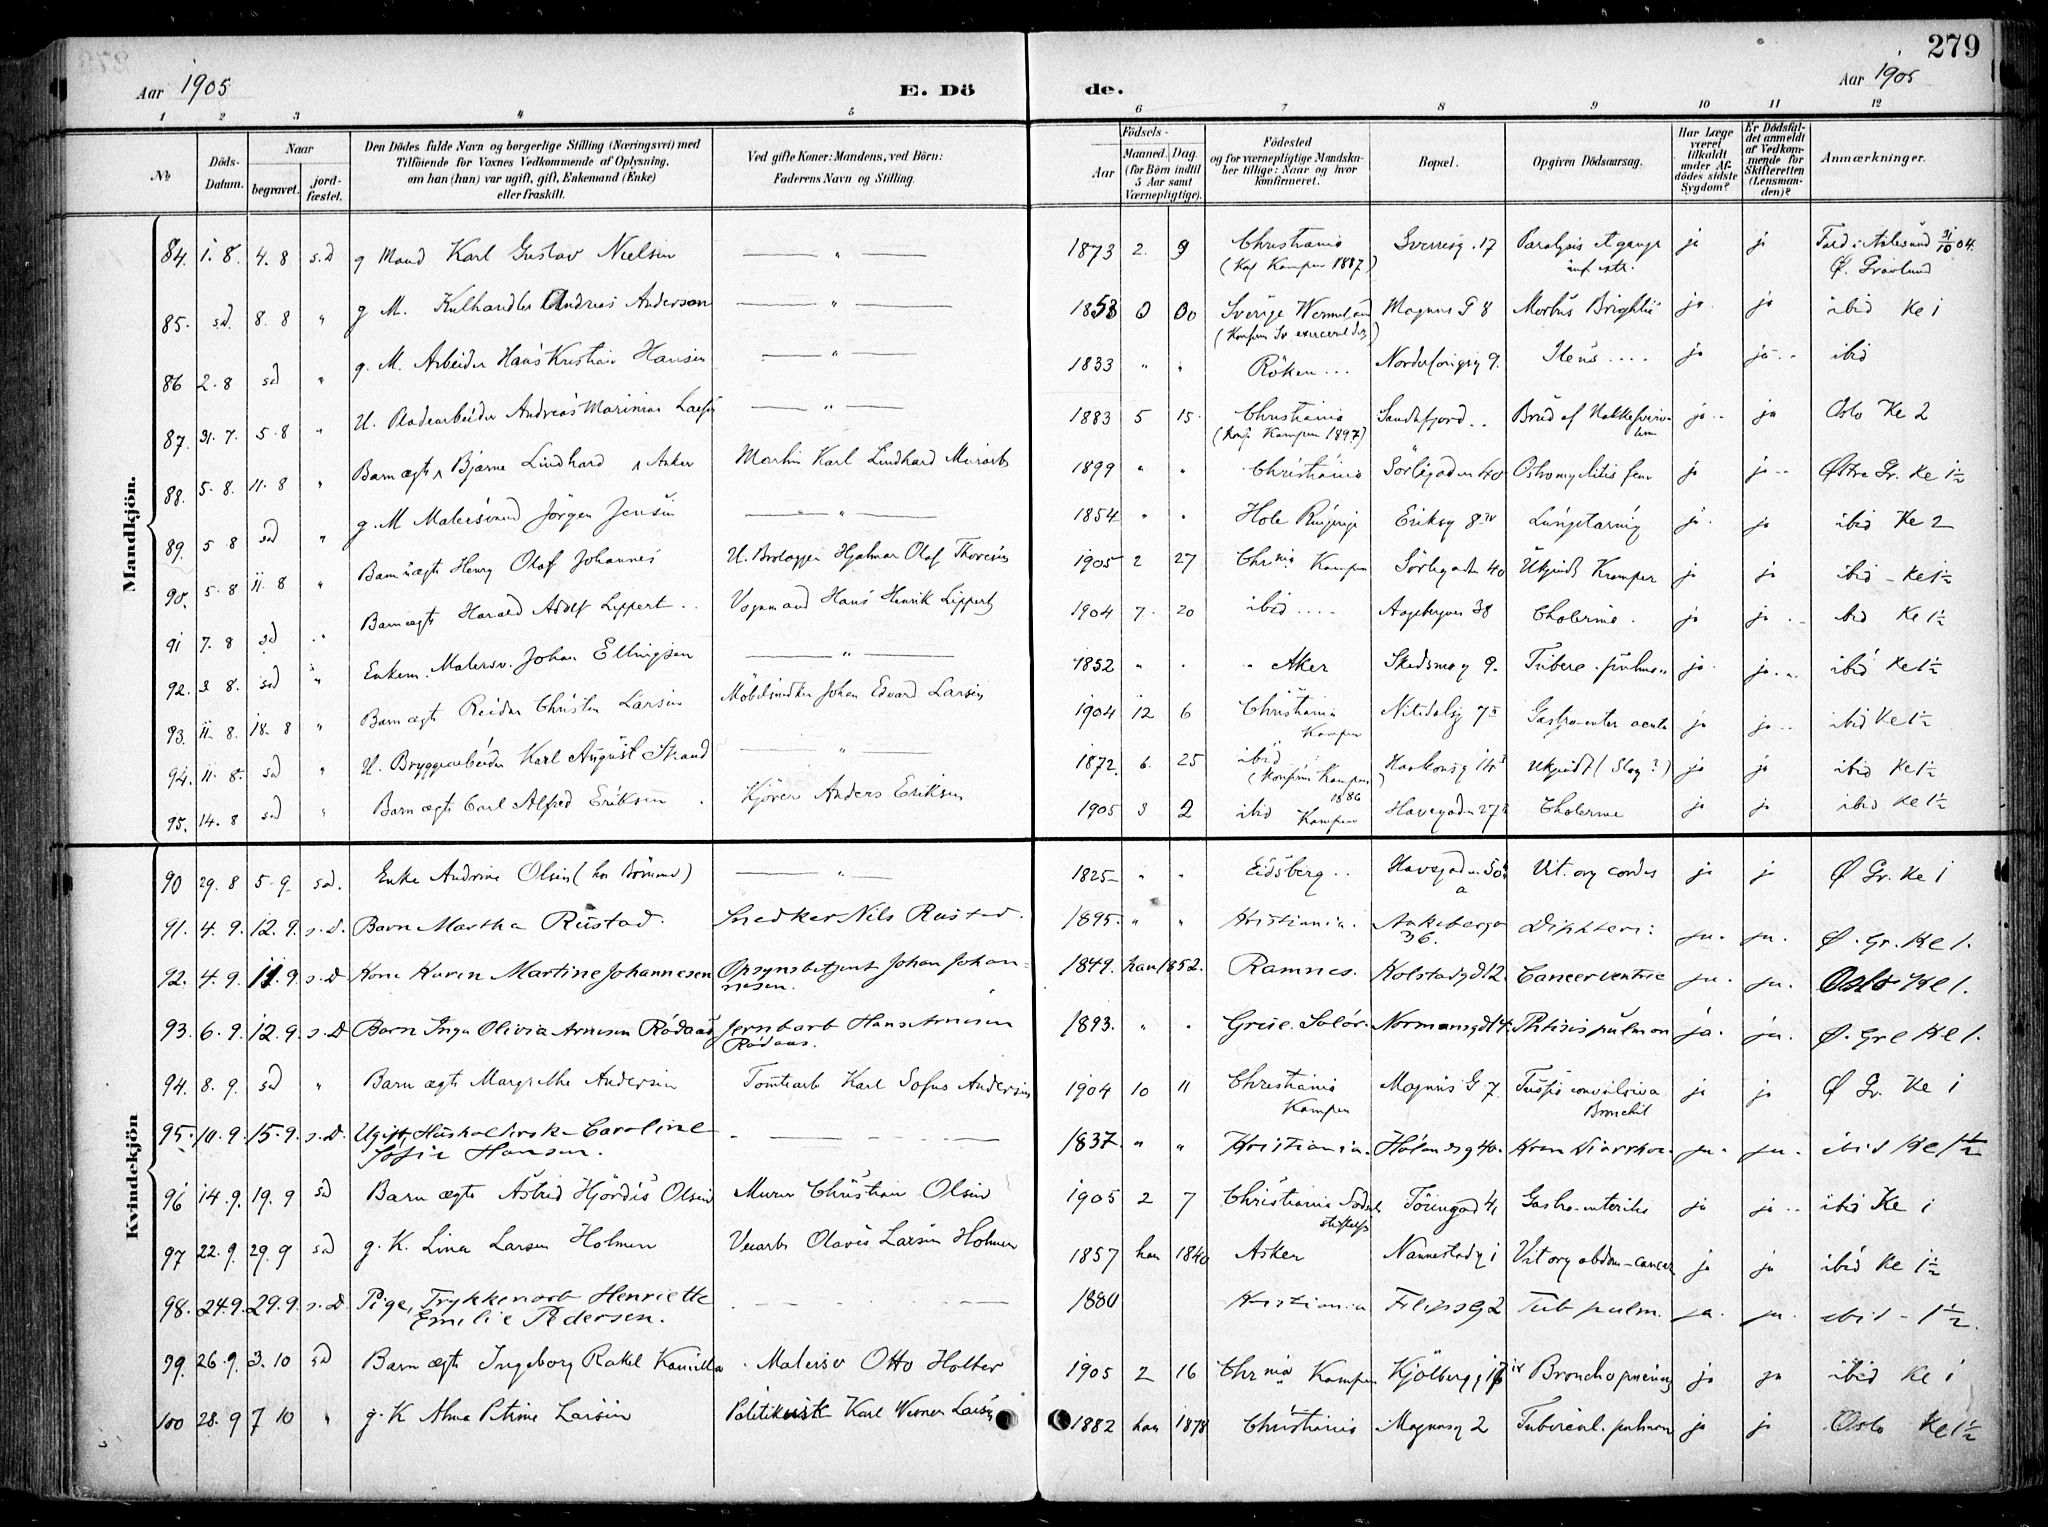 279
Aar 1905
E. Dö
de.
Aar 1905
1 2 3 4 5 6 7 8 9 10 11 12
№
Döds-Datum.
Naar
begravet.
jordfæstet.
Den Dödes fulde Navn og borgerlige Stilling (Næringsvei) med
Tilföiende for Voxnes Vedkommende af Oplysning,
om han (hun) var ugift, gift, Enkemand (Enke)
eller fraskilt.
Ved gifte Koner: Mandens, ved Börn:
Faderens Navn og Stilling.
Födsels-
Aar
Maaned. Dag.
(for Börn indtil
5 Aar samt
Værnepligtige).
Födested
og for værnepligtige Mandska-
ber tillige: Naar og hvor
konfirmeret.
Bopæl.
Opgiven Dödsaarsag.
Har Læge
været
tilkaldt
under Af-
dödes sidste
Sygdom?
Er Dödsfal-
det anmeldt
af Vedkom-
mende for
Skifteretten
(Lensman-
den)?
Anmærkninger.
Mandkjön.
84. 1. 8. 4. 8 s.d g Mand Karl Gustav Nielsen — " — 1873 2. 9 Christiania Sverresg. 17 Paralysis ja ja
(Kaf Kampen 1887)
85. sd. 8. 8 " g M. Kulhandler Andreas Anderson — " — 1853 Sverige Magnus G 8 Morbus Brightii ja ja ibid Ke 1
86 2. 8 sd " g. M. Arbeider Hans Kristian Hansen — " — 1833 " " Röken ... 9. Ileus .... ja ja ibid
87. 31. 7. 5. 8 " U. Pladearbeider Andreas Marinius Larsen — " — 1883 5 15. Christiania Sandefjord .. Brud af ja ja Oslo Ke 2
(Konf. Kampen 1897)
88. 5. 8. 11. 8 " Barn ægte Bjarne Lindhard Martin Karl Lindhard Murarb 1899 " " Christiania Sörligaden 40 Osteomyelitis fem ja ja Østre Gr. Ke 1½
89. 5 8 sd " g. M Malersvend Jörgen Jensen — " — 1854 " " Hole Ringerige Eriksg 8 IV Lungetæring ja ja ibid Ke 2
90. 5. 8 11. 8 " Barn uægte Henry Olaf Johannes U. Brolægger Hjalmar Olaf Thoresen 1905 2 27 Chr nia Kampen Sörligaden 40 Ukjendt Kramper ja ja ibid - Ke 1½
91 7. 8 sd " Barn ægte Harald Adolf Lippert .. Vognmand Hans Henrik Lippert 1904 7. 20 ibid .... 38 Cholerine. ja ja ibid Ke 1½
92. 3 8. sd " Enkem. Malersv. Johan Ellingsen — " — 1852 " " Aker Skedsmog 9. Tuberc. pulm. ja ja ibid Ke 1½
93. 11. 8. 18. 8 " Barn ægte Reidar Christen Larsen Möbelsnedker Johan Edvard Larsen 1904 12 6 Christiania Nitedalsg 7 II Gastro-enter acuta ja ja ibid Ke 1½
Kampen
94. 11. 8. sd " U. Bryggearbeider Karl August Strand — " — 1872. 6. 25 ibid Haakonsg 14 Ukjendt (Slag?) ja ja ibid Ke 1½
(Konfirm Kampen 1886)
95. 14. 8 sd " Barn ægte Carl Alfred Eriksen Kjörer Anders Eriksen 1905 3 2 ibid Kampen Havegaden 27 Cholerine ja ja ibid Ke 1½
Kvindekjön
90 29. 8 5. 9. sd. Enke Andrine Olsen — " — 1825 " " Eidsberg .. Havegaden Vit. org cordis ja ja Ø Gr. Ke 1
91. 4. 9. 12. 9. s. D. Barn Martha Rustad. Snedker Nils Rustad. 1895. " " Kristiania. Aakebergv 36. Difhteri: ja. ja. Ø. Gr. Ke 1.
92. 4. 9. 11. 9. s. D. Kone Karen Martine Johannesen Opsynsbetjent Johan Johan-
nesen. 1849. han 1852. Ramnes. Kolstadgd 12. Cancer ventric ja. ja. Oslo Ke 1.
93. 6. 9. 12. 9. s. D. Barn Inga Olivia Arnesen Rödaas Jernbarb Hans Arnesen
Rödaas. 1893. " " Grue. Solör. Normannsgd 14. Phtisis pulmon ja. ja. Ø. Gr Ke 1.
94. 8. 9. sd " Barn ægte Margrethe Andersen Tomtearb Karl Sofus Andersen 1904 10 11 Christiania Magnus G. 7 Tussis convulsiva ja ja Ø Gr. Ke 1
Kampen Bronchit
95. 10. 9. 15. 9. s. D. Ugift, Husholderske Caroline
Sofie Hansen. — 1837. " " Kristiania. Hölandsg 40. Kron Diarrhoe. ja. ja. ibid Ke 1½
96 14. 9. 19. 9 sd Barn ægte Astrid Hjördis Olsen Murer Christian Olsen 1905 2 7 Christiania Gastro-enteritis ja ja ibid Ke 1
97 22. 9. 29. 9 sd g. K. Lina Larsen Holmen Veiarb Olavis Larsen Holmen 1857 han 1840 Asker Nannestadg 1 Vit org abdom-cancer ja ja ibid Ke 1½
98. 24. 9. 29. 9. s. D. Pige, Trykkeriarb Henriette
Emilie Pedersen. — 1880 Kristiania Filipsg 2 Tub pulm. ja. ja. ibid - 1½
99. 26. 9. 3. 10 sd Barn ægte Ingeborg Rakel Kamilla Malersv Otto Holter 1905 2 16 Chr nia Kampen Kjölberg Bronchopneumo ja ja ibid Ke 1
100 28. 9 7 10 " g. K Alma Petrine Larsen Politikonst Karl Werner Larsen 1882 han 1878 Christiania Magnusg 2 Tubercul. pulmon ja ja Oslo Ke 1½